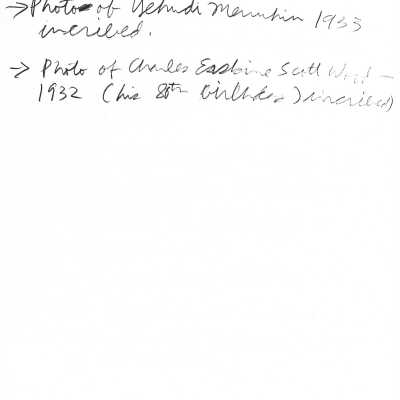 → Photo of Yehudi Menuhin 1933
incribed.
→ Photo of Charles Erskine Scott Wood –
1932 (his 80th birthday) incribed)